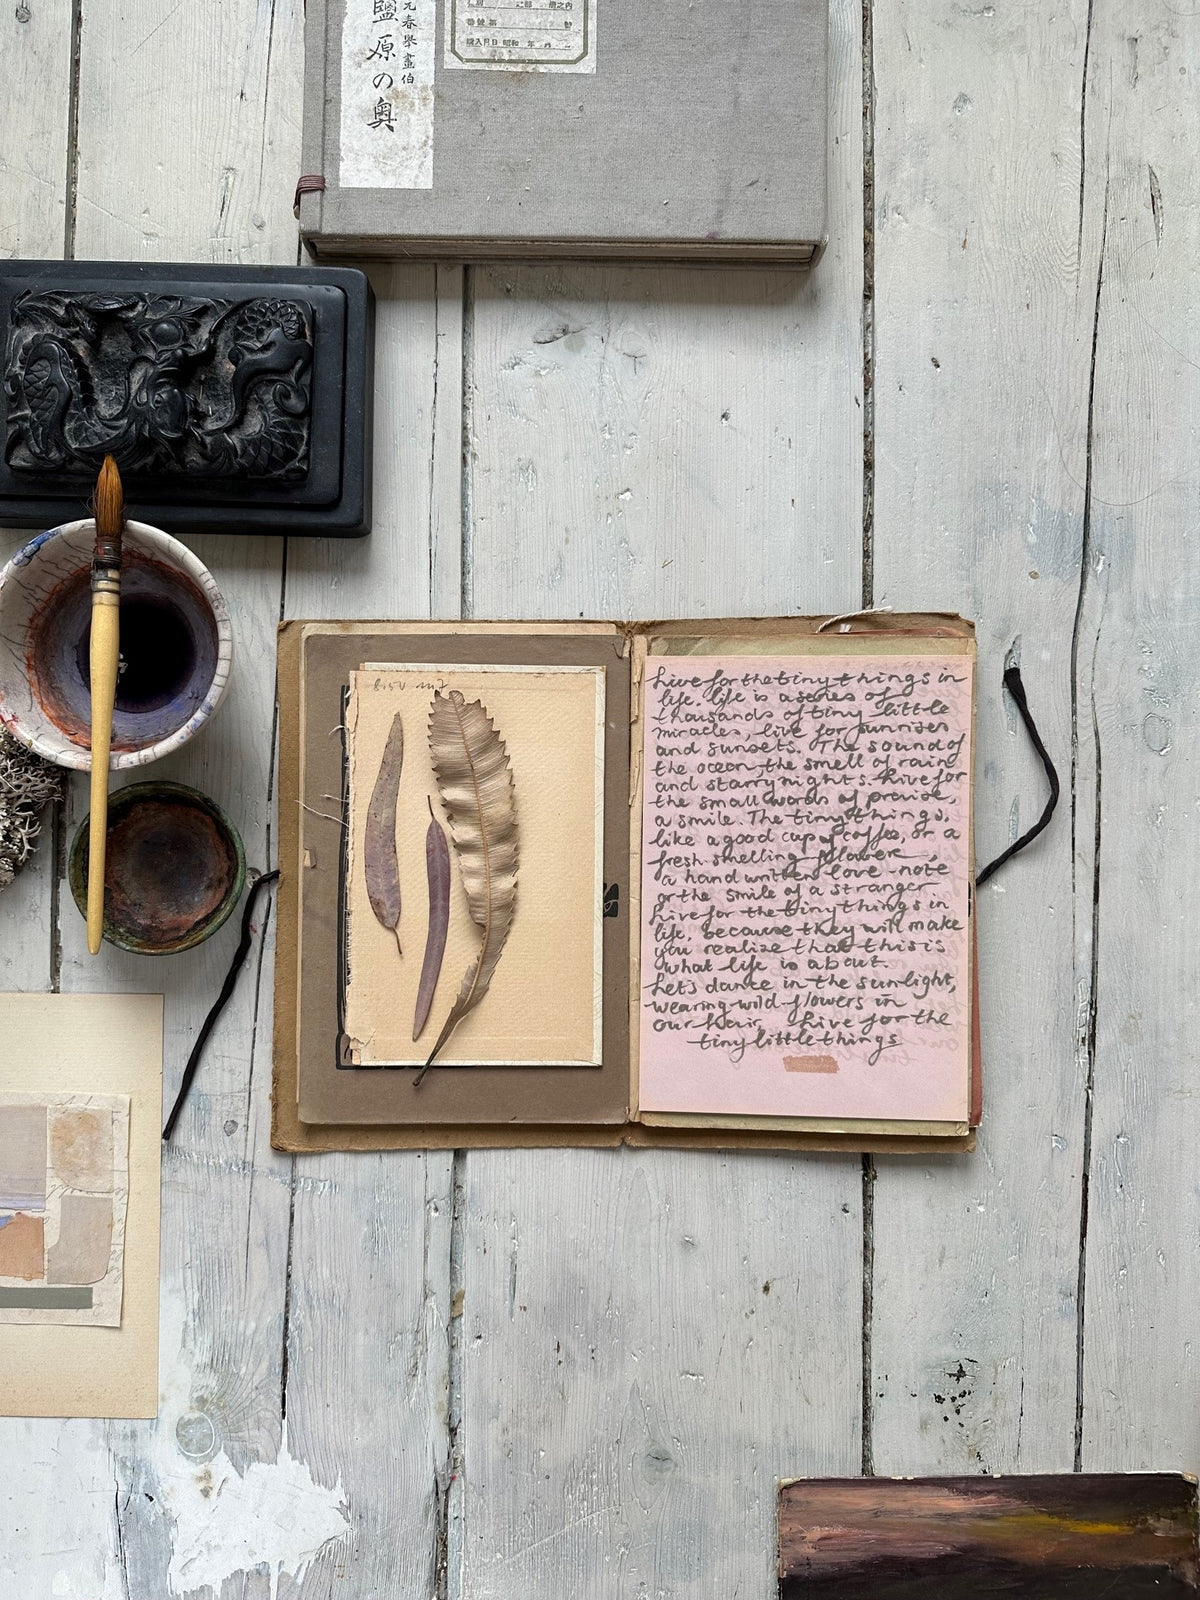 鹽原の奥
元春擧畫伯
部
類之内
番號 第 號
購入月日 昭和 年 月
Live for the tiny things in
life. life is a series of
thousands of tiny little
miracles, live for sunrises
and sunsets. The sound of
the ocean, the smell of rain
and starry nights. Live for
the small words of praise,
a smile. The tiny things,
like a good cup of coffee, or a
fresh smelling flower,
a hand written love-note
or the smile of a stranger
Live for the tiny things in
life, because they will make
you realize that this is
what life is about.
Let's dance in the sunlight,
wearing wild-flowers in
our hair. Live for the
tiny little things